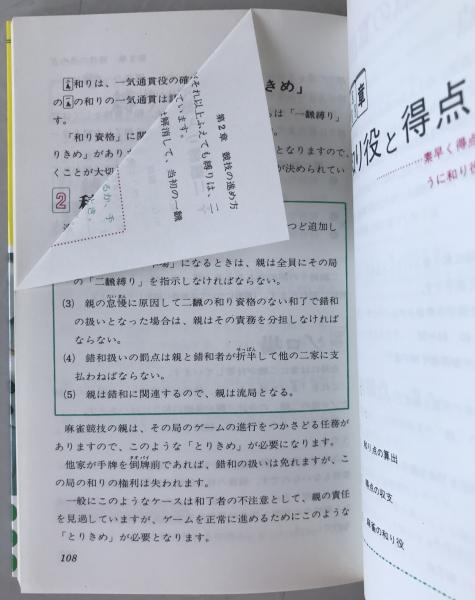 和りは、一気通貫役の確
の和りの一気通貫は
きめ」
は「一飜縛り」
「和り資格」に関
となりますので、
りきめ」があり
くことが大切
が決められてい
2
つど追加し
第2章 競技の進め方
それ以上ふえても縛りは、二
ています。
解消して、当初の一飜
るか、手
」になるときは、親は全員にその局
の「二飜縛り」を指示しなければならない。
(3) 親の怠慢に原因して二飜の和り資格のない和了で錯和
の扱いとなった場合は、親はその責務を分担しなければ
ならない。
(4) 錯和扱いの罰点は親と錯和者が折半して他の二家に支
払わねばならない。
(5) 親は錯和に関連するので、親は流局となる。
麻雀競技の親は、その局のゲームの進行をつかさどる任務が
ありますので、このような「とりきめ」が必要になります。
他家が手牌を倒牌前であれば、錯和の扱いは免れますが、こ
の局の和りの権利は失われます。
一般にこのようなケースは和了者の不注意として、親の責任
を見過していますが、ゲームを正常に進めるためにこのような
「とりきめ」が必要となります。
108
章
り役と得点
素早く得点
うに和り役
和り点の算出
得点の収支
麻雀の和り役